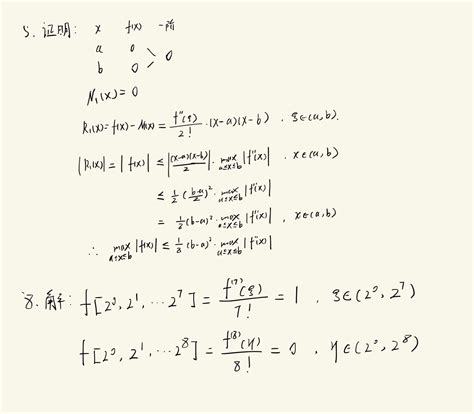 5. 证明: x f(x) 一阶
a 0
b 0 > 0
N₁(x) = 0
R₁(x) = f(x) - N₁(x) = f''(ξ)/2! · (x-a)(x-b) , ξ∈(a, b).
|R₁(x)| = | f(x)| ≤ |(x-a)(x-b)/2| · max_{a≤x≤b} |f''(x)| , x∈(a, b)
≤ 1/2 (b-a/2)² · max_{a≤x≤b} |f''(x)|
= 1/8 (b-a)² · max_{a≤x≤b} |f''(x)| , x∈(a, b)
∴ max_{a≤x≤b} |f(x)| ≤ 1/8 (b-a)² · max_{a≤x≤b} |f''(x)|
8. 解: f[2⁰, 2¹, ⋯ 2⁷] = f⁽⁷⁾(ξ)/7! = 1 , ξ∈(2⁰, 2⁷)
f[2⁰, 2¹, ⋯ 2⁸] = f⁽⁸⁾(η)/8! = 0 , η∈(2⁰, 2⁸)